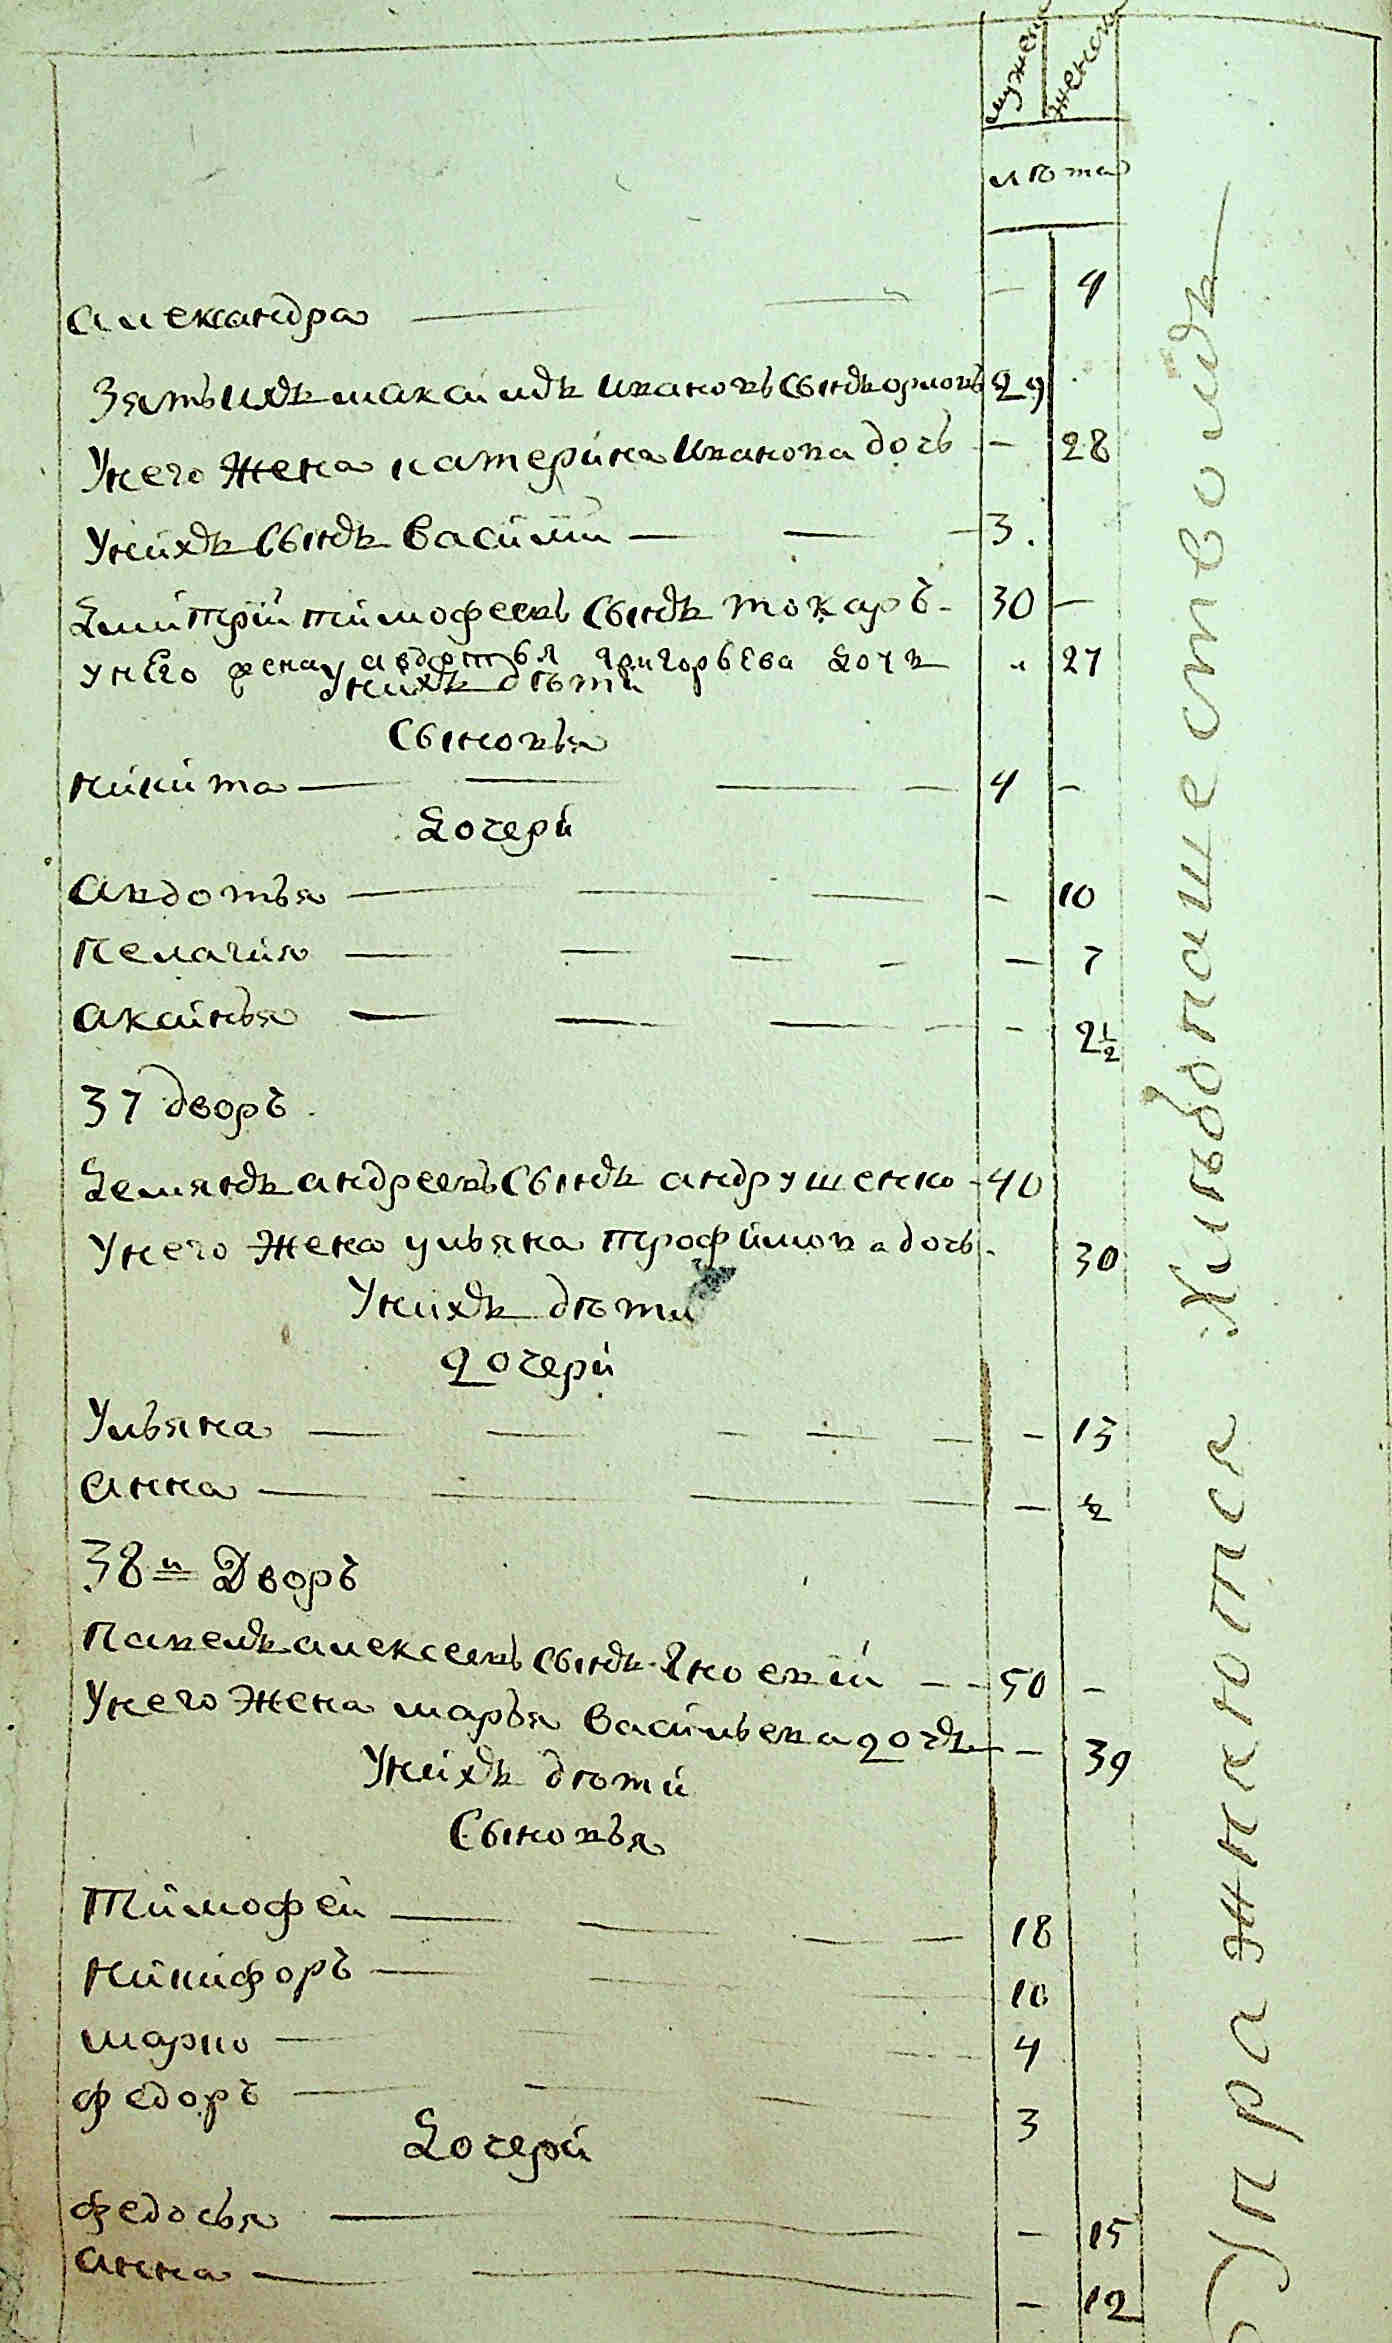 мужеск женск
лѣта
Александра — — — 4
Зять ихъ максимъ Ивановъ сынъ орловъ 29
Унего жена катерина Иванова дочь — 28
Унихъ сынъ василий — — — 3.
Дмитрий тимофеевъ сынъ токарь - 30 —
унего жена авдотья григорьева дочь " 27
Унихъ дѣти
Сыновья
никита — — — — 4 —
Дочери
авдотья — — — — 10
пелагия — — — — — 7
аксинья — — — — — 2½
37 дворъ.
Демянъ андреевъ сынъ андрушенко - 40
Унего жена ульяна трофимова дочь. 30
Унихъ дѣти
дочери
Ульяна — — — — — — 13
анна — — — — — ½
38й Дворъ
Павелъ алексеевъ сынъ — — 50 —
Унего жена марья васильева дочь — 39
Унихъ дѣти
Сыновья
Тимофей — — — — 18
никифоръ — — — 10
марко — — — — 4
федоръ — — — 3
Дочери
федосья — — — 15
анна — — — 12
Упражняются Хлѣбопашествомъ